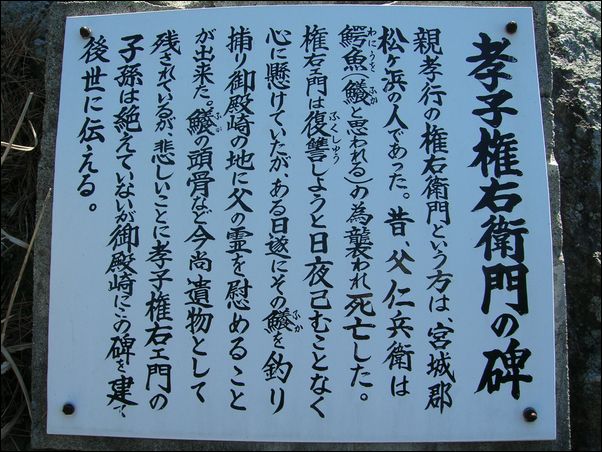 孝子権右衛門の碑
親孝行の権右衛門という方は、宮城郡
松ヶ浜の人であった。昔、父仁兵衛は
鰐魚(鱶と思われる)の為襲われ死亡した。
権右エ門は復讐しようと日夜已むことなく
心に懸けていたが、ある日遂にその鱶を釣り
捕り御殿崎の地に父の霊を慰めること
が出来た。鱶の頭骨など今尚遺物として
残されているが、悲しいことに孝子権右エ門の
子孫は絶えていないが御殿崎にこの碑を建て
後世に伝える。